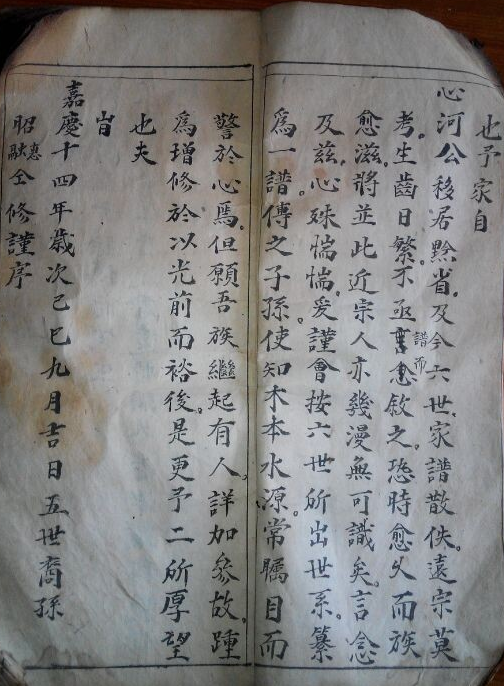 也予家自
心河公移居黔省。及今六世。家譜散佚。遠宗莫
考。生齒日繁。不亟譜而敘之。恐時愈久而族
愈滋。將並此近宗人亦幾漫無可識矣。言念
及茲。心殊惴惴。爰謹會按六世所出世系。纂
為一譜。傳之子孫。使知木本水源。常矚目而
警於心焉。但願吾族繼起有人。詳加參故。踵
為增修於以光前而裕後。是更予二所厚望
也夫
旹
嘉慶十四年歲次己巳九月吉日五世裔孫
昭惠融仝修謹序